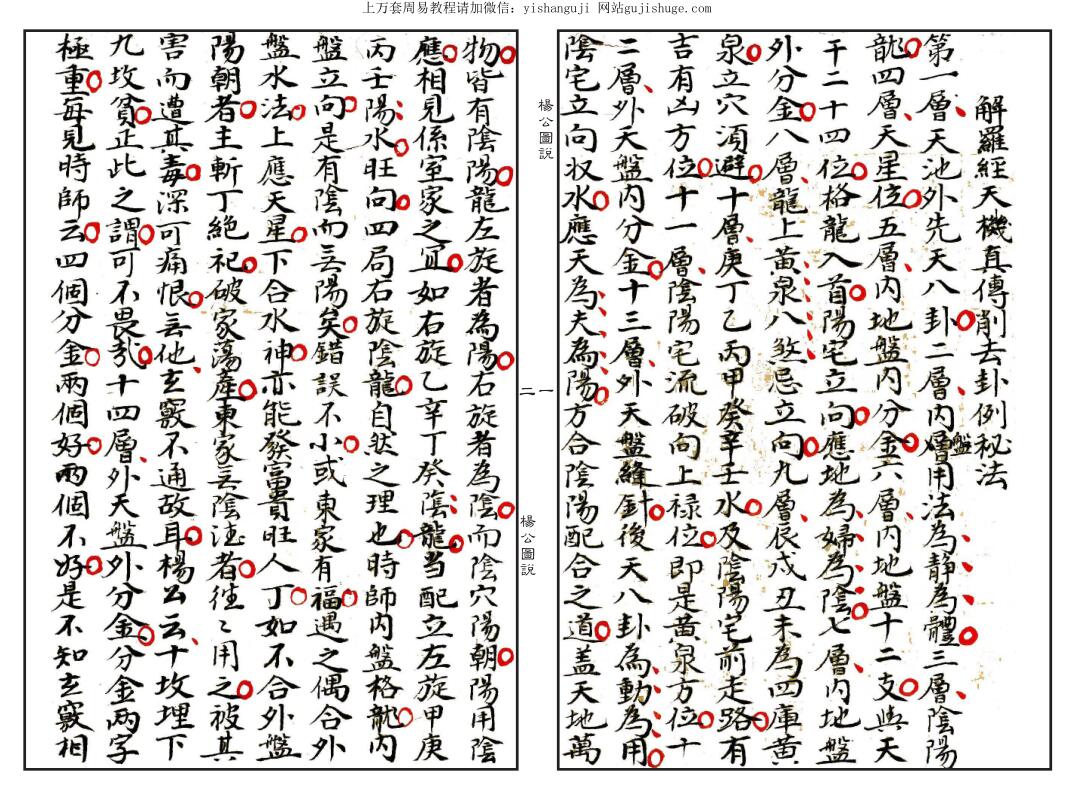 上万套周易教程请加微信：yishanguji 网站gujishuge.com
解羅經天機真傳削去卦例秘法
第一層天池外先天八卦二層内層盤用法為静為體三層陰陽
龍四層天星位五層内地盤内分金六層内地盤十二支與天
干二十四位格龍入首陽宅立向應地為婦為陰七層内地盤
外分金八層龍上黄泉八煞忌立向九層辰戌丑未為四庫黄
泉立穴須避十層庚丁乙丙甲癸辛壬水及陰陽宅前走路有
吉有凶方位十一層陰陽宅流破向上禄位即是黄泉方位十
二層外天盤内分金十三層外天盤縫針後天八卦為動為用
陰宅立向収水應天為夫為陽方合陰陽配合之道盖天地萬
楊公圖説
一
二
楊公圖説
物皆有陰陽龍左旋者為陽右旋者為陰而陰穴陽朝陽用陰
應相見係室家之宜如右旋乙辛丁癸陰龍当配立左旋甲庚
丙壬陽水旺向四局右旋陰龍自然之理也時師内盤格龍内
盤立向是有陰而无陽矣錯誤不小或東家有福遇之偶合外
盤水法上應天星下合水神亦能發富貴旺人丁如不合外盤
陽朝者主斬丁絶祀破家蕩産東家无陰德者往〻用之被其
害而遭其毒深可痛恨无他玄竅不通故耳楊公云十坟埋下
九坟貧正此之謂可不畏哉十四層外天盤外分金分金兩字
極重每見時師云四個分金兩個好兩個不好是不知玄竅相